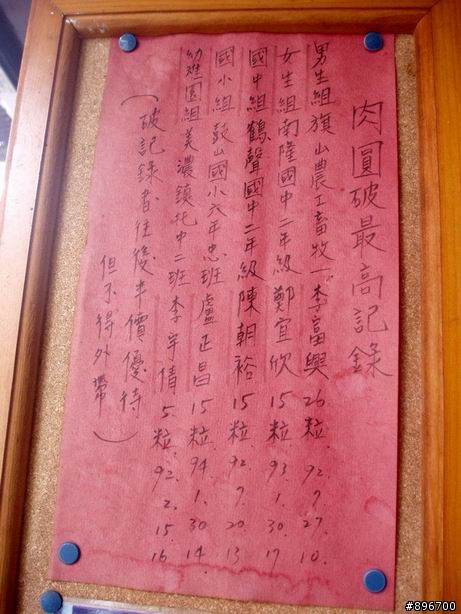 肉圓破最高記錄
男生組旗山農工畜牧一李富興26粒 92 7 27 10
女生組南隆國中二年級鄭宜欣15粒 93 1 30 17
國中組鶴聲國中二年級陳朝裕15粒 92 7 20 13
國小組鼓山國小六年忠班盧正昌15粒 94 1 30 14
幼稚園組美濃鎮托中二班李宇倩5粒 92 2 15 16
(破記錄者往後半價優待
但不得外帶)
#896700